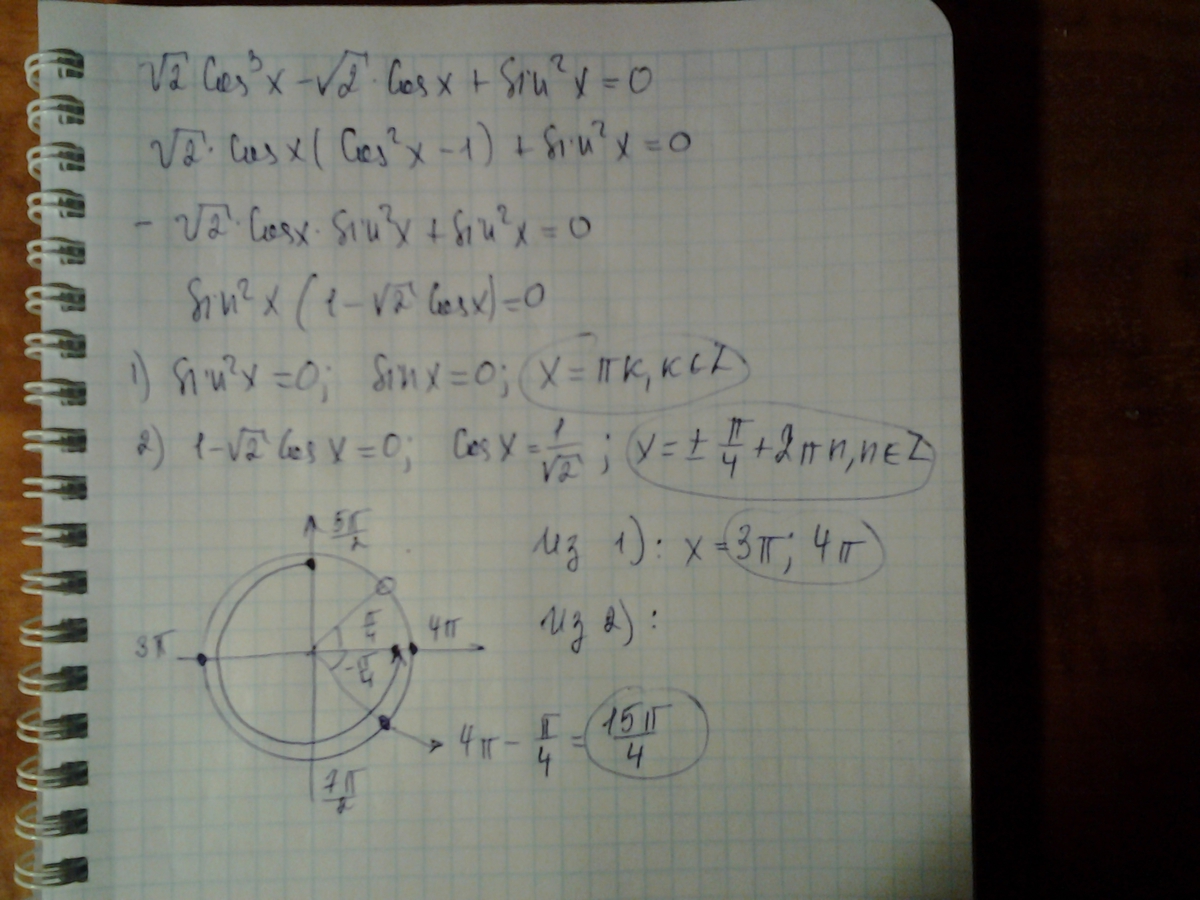 √2 Cos³x − √2 · Cosx + Sin²x = 0
√2 · Cosx (Cos²x − 1) + Sin²x = 0
− √2 · Cosx · Sin²x + Sin²x = 0
Sin²x (1 − √2 Cosx) = 0
1) Sin²x = 0; Sinx = 0; x = πk, k ∈ Z
2) 1 − √2 Cosx = 0; Cosx = 1/√2; x = ± π/4 + 2πn, n ∈ Z
5π/2
Из 1): x = 3π; 4π
π/4
Из 2):
3π
4π
−π/4
4π − π/4 = 15π/4
7π/2